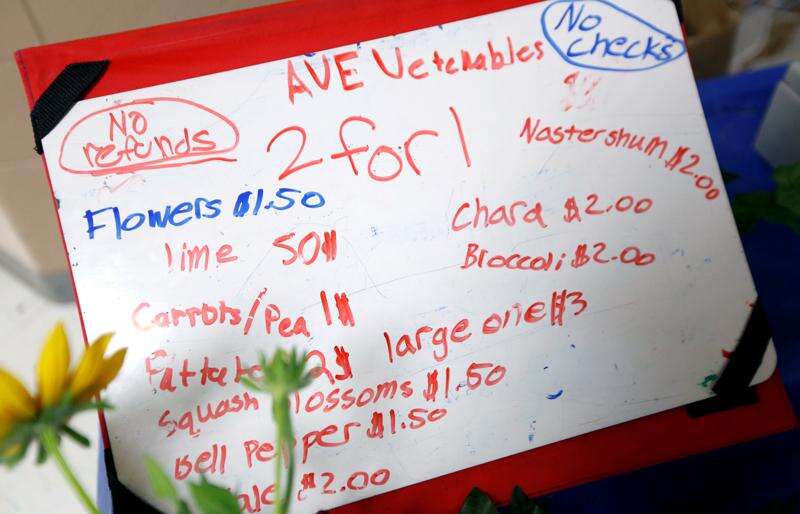 AVE Vetchables
No checks
No refunds
2 for 1
Nastershum $2.00
Flowers $1.50
lime 50$
Chard $2.00
Broccoli $2.00
Carrots/Pea 1$
2$ large one $3
Squash lossoms $1.50
Bell Pepper $1.50
ale $2.00